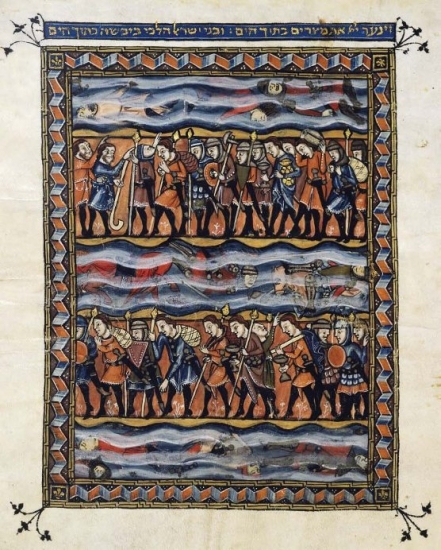 וינער יי את מצרים בתוך הים : ובני ישראל הלכו ביבשה בתוך הים